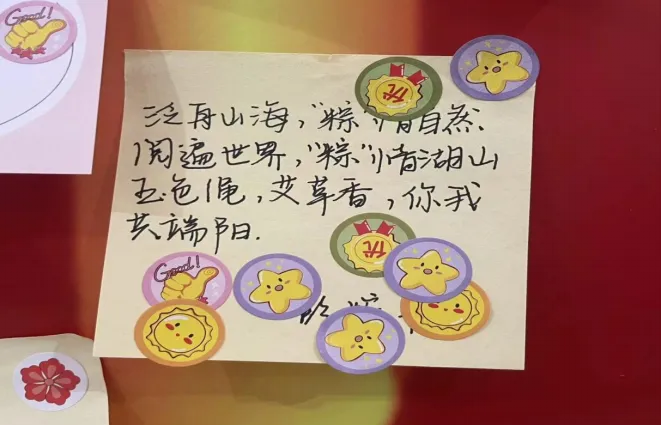 Good!
优
泛舟山海，"粽"情自然.
阅遍世界，"粽"情湖山
五色绳，艾草香，你我
共端阳.
优
Good!